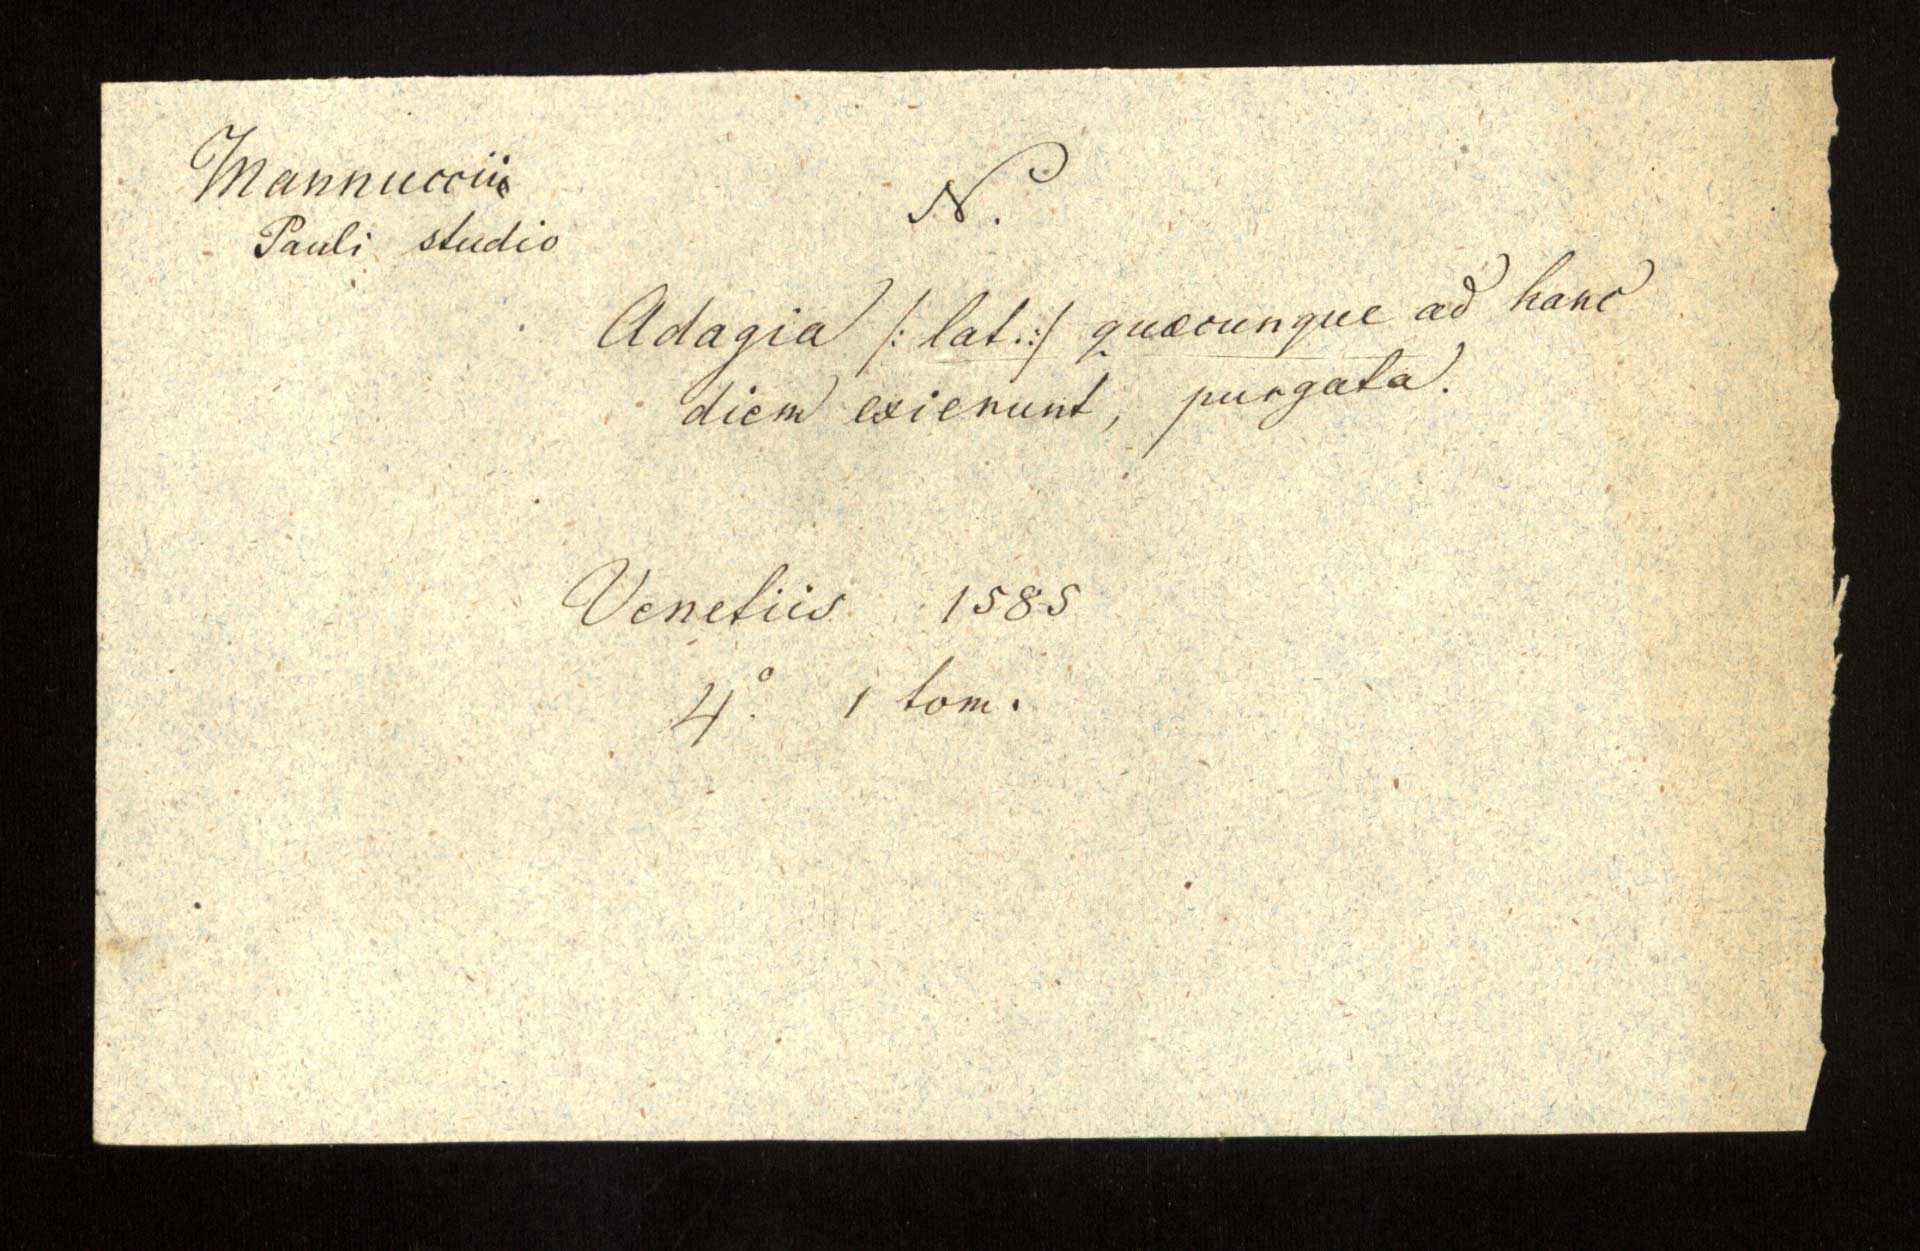 Mannuccii
Pauli studio
N.
Adagia /: lat. :/ quæcunque ad hanc
diem exierunt, purgata.
Venetiis 1585
4.° 1 tom.